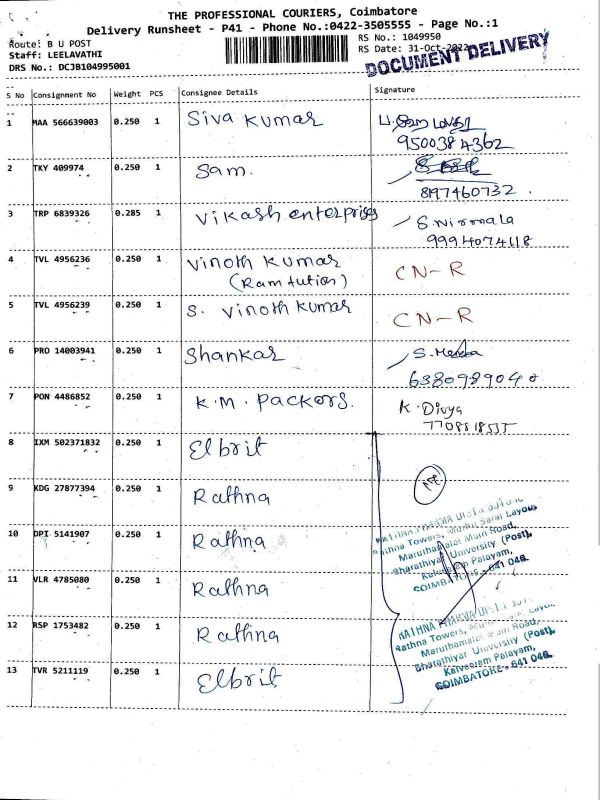 THE PROFESSIONAL COURIERS, Coimbatore
Delivery Runsheet - P41 - Phone No.:0422-3505555 - Page No.:1
Route: B U POST
RS No.: 1049950
Staff: LEELAVATHI
RS Date: 31-Oct-2022
DRS No.: DCJB104995001
DOCUMENT DELIVERY
S No Consignment No Weight PCS Consignee Details Signature
1 MAA 566639003 0.250 1 Siva Kumar
9500384362
2 TKY 409974 0.250 1 Sam.
897460732.
3 TRP 6839326 0.285 1 Vikash enterprises S Nirmala
9994074118
4 TVL 4956236 0.250 1 Vinoth Kumar CN-R
(Ram tution)
5 TVL 4956239 0.250 1 S. Vinoth Kumar CN-R
6 PRO 14003941 0.250 1 Shankar
6380989040
7 PON 4486852 0.250 1 K.M. Packors. K. Divya
7708818535
8 IXM 502371832 0.250 1 Elbrit
9 KDG 27877394 0.250 1 Rathna
10 DPI 5141907 0.250 1 Rathna
RATHNA PHARMA
Rathna Towers,
Maruthamalai Main Road,
Bharathiyar University (Post),
Kalveeram Palayam,
COIMBATORE - 641 046.
11 VLR 4785080 0.250 1 Rathna
12 RSP 1753482 0.250 1 Rathna
RATHNA PHARMA
Rathna Towers,
Maruthamalai Main Road,
Bharathiyar University (Post),
Kalveeram Palayam,
COIMBATORE - 641 046.
13 TVR 5211119 0.250 1 Elbrit